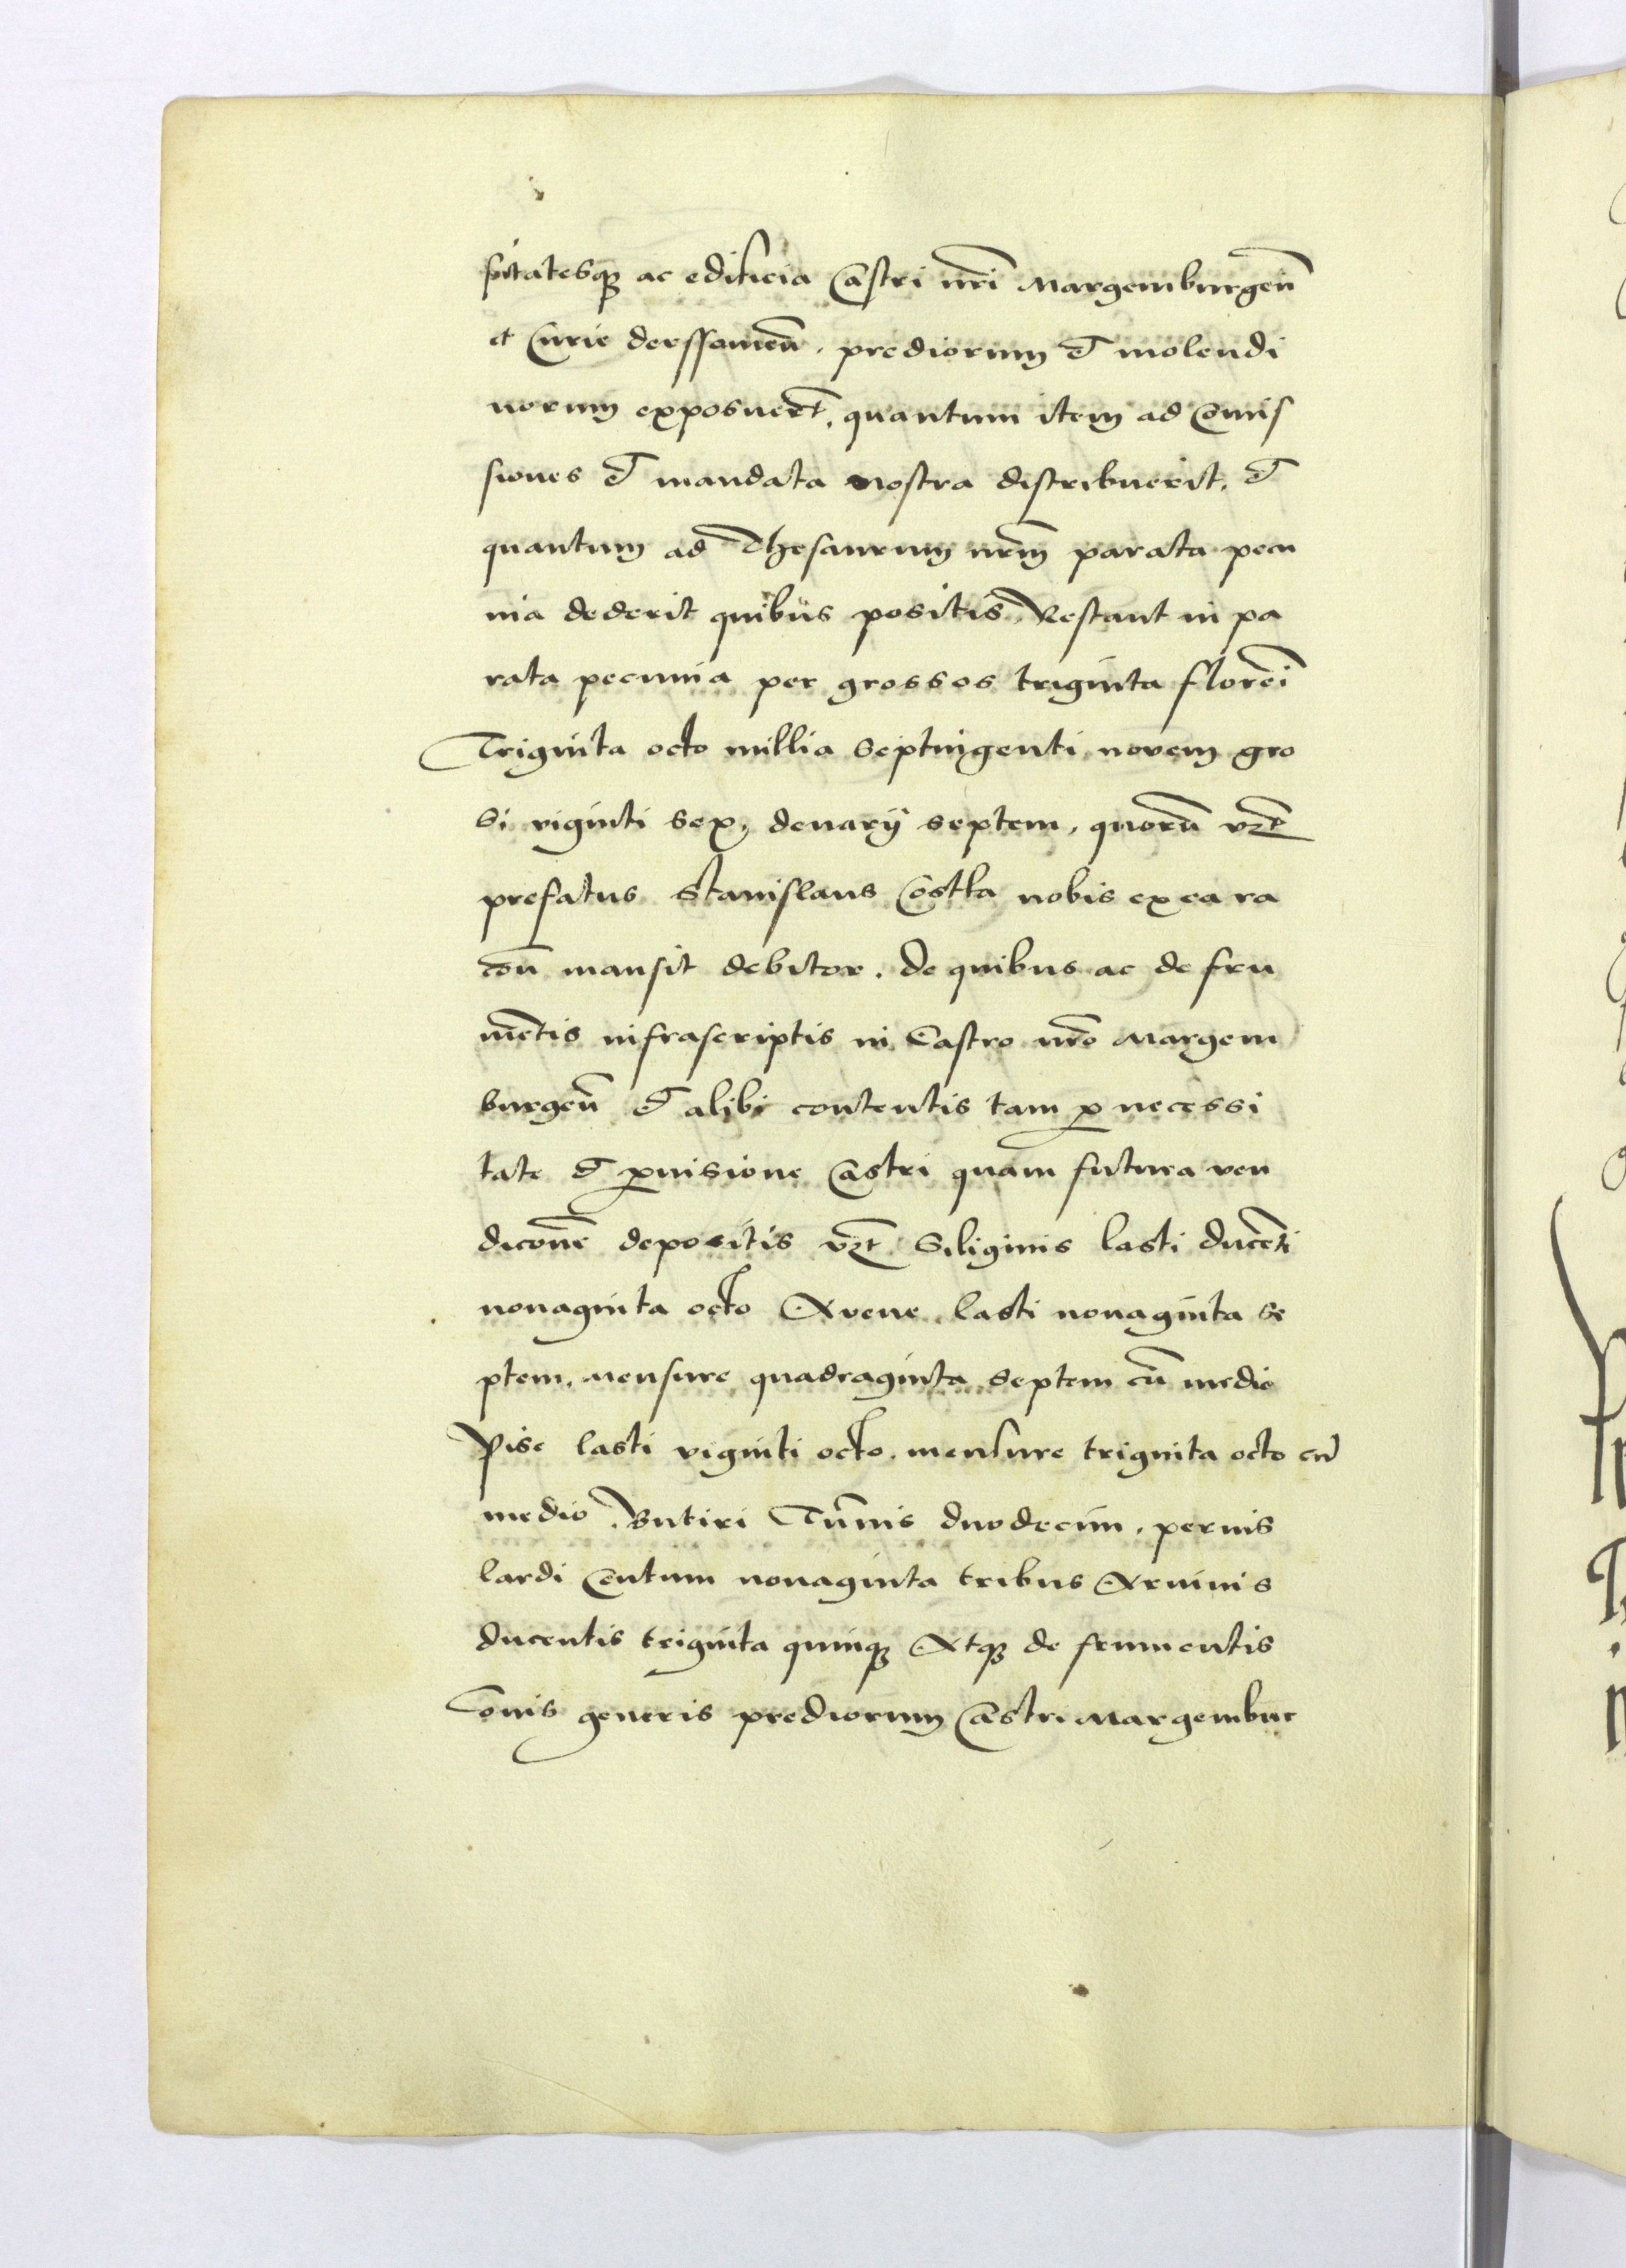 sitatesq₃ ac edificia Castri nr̃i Margemburgeñ
et Curie derssovieñ. prediorum et molendi
norum exposuer̃t, quantum item ad Com̃is
siones et mandata nostra distribuerit, et
quantum ad Thesaurum nr̃m parata pecu
nia dederit quibus positis, Restant in pa
rata pecunia per grossos triginta floreñi
Triginta octo millia septuigenti novem gro
si viginti sex, denarÿ septem, quorũ vz̃t
prefatus Stanislaus Costka nobis ex ea ra
cõn mansit debitor. de quibus ac de fru
mẽtis infrascriptis in Castro nr̃o Margem
burgeñ et alibi contentis tam ꝓ necessi
tate et ꝓvisione Castri quam futura ven
dicõne depositis vz̃t Siliginis lasti ducẽti
nonaginta octo Avene lasti nonaginta se
ptem, mensure quadraginta septem cũ medio
Pise lasti viginti octo. mensure triginta octo cũ
medio. Butiri Tũnis duodecim, pernis
lardi Centum nonaginta tribus Arvinis
ducentis triginta quinq₃ Atq₃ de frumentis
Om̃is generis prediorum Castri Margembur